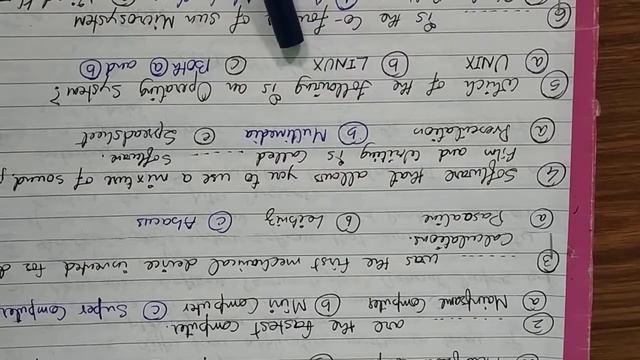 ② ........ are the fastest computer.
ⓐ Mainframe Computer ⓑ Mini Computer ⓒ Super Computer
③ ........ was the first mechanical device invented for
Calculations.
ⓐ Pascaline ⓑ Leibniz ⓒ Abacus
④ Software that allows you to use a mixture of sound,
Film and Writing is called ........ Software.
ⓐ Presentation ⓑ Multimedia ⓒ Spreadsheet
⑤ Which of the following is an Operating System?
ⓐ UNIX ⓑ LINUX ⓒ Both ⓐ and ⓑ
⑥ ........ is the Co- of Sun Microsystem